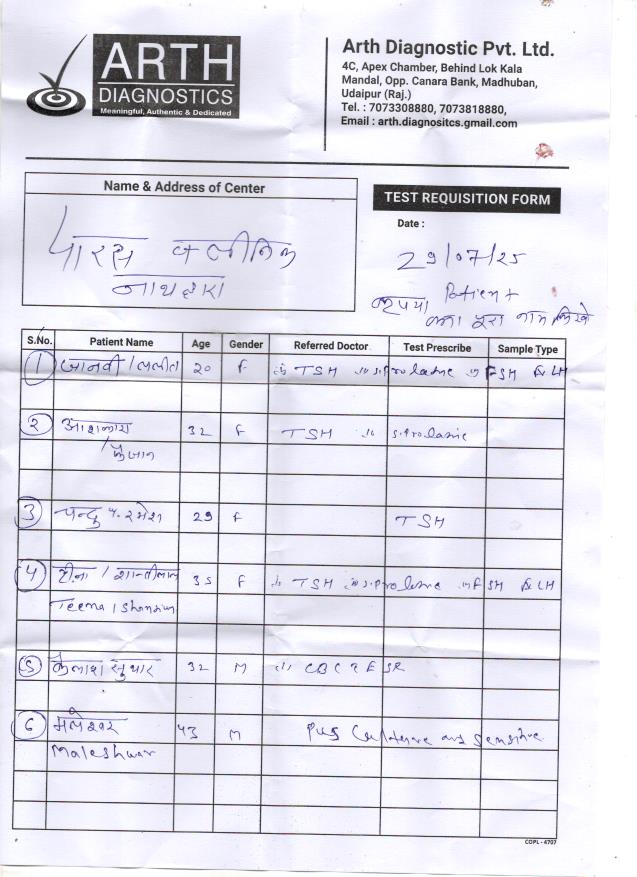 ARTH
DIAGNOSTICS
Meaningful, Authentic & Dedicated
Arth Diagnostic Pvt. Ltd.
4C, Apex Chamber, Behind Lok Kala
Mandal, Opp. Canara Bank, Madhuban,
Udaipur (Raj.)
Tel. : 7073308880, 7073818880,
Email : arth.diagnositcs.gmail.com
Name & Address of Center
TEST REQUISITION FORM
पारस क्लीनिक
नाथद्वारा
Date :
29/07/25
कृपया Patient
का पूरा नाम लिखे
S.No. Patient Name Age Gender Referred Doctor Test Prescribe Sample Type
1 जानवी / ललीत 20 F TSH S.Prolactine FSH LH
2 32 F TSH S.Prolactine
3 चन्दु रमेश 29 F TSH
4 टीना / शान्तीलाल 35 F TSH S.Prolactine FSH LH
Teema / Shantilal
5 कैलाश सुथार 32 M CBC ESR
6 मलेश्वर 43 M Pus Culture and Sensitive
Maleshwar
COPL - 4707